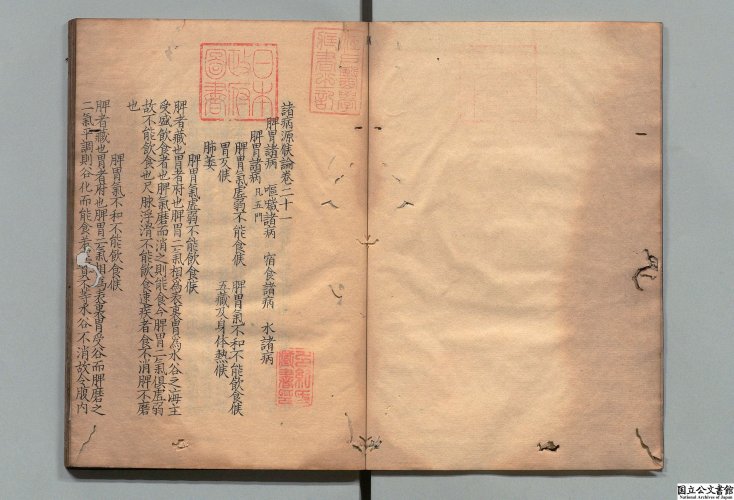 諸病源候論卷二十一
脾胃諸病　嘔噦諸病　宿食諸病　水諸病
脾胃諸病凡五門
脾胃氣虛弱不能食候　脾胃氣不和不能飲食候
胃反候　五藏及身体熱候
肺萎
脾胃氣虛弱不能飲食候
脾者藏也胃者府也脾胃二氣相為表裏胃為水谷之海主
受盛飲食者也脾氣磨而消之則能食今脾胃二氣俱虛弱
故不能飲食也尺脉浮滑不能飲食速疾者食不消脾不磨
也
脾胃氣不和不能飲食候
脾者藏也胃者府也脾胃二氣相為表裏胃受谷而脾磨之
二氣平調則谷化而能食若虛實不等水谷不消故令腹內
日本
政府
圖書
国立公文書館
National Archives of Japan